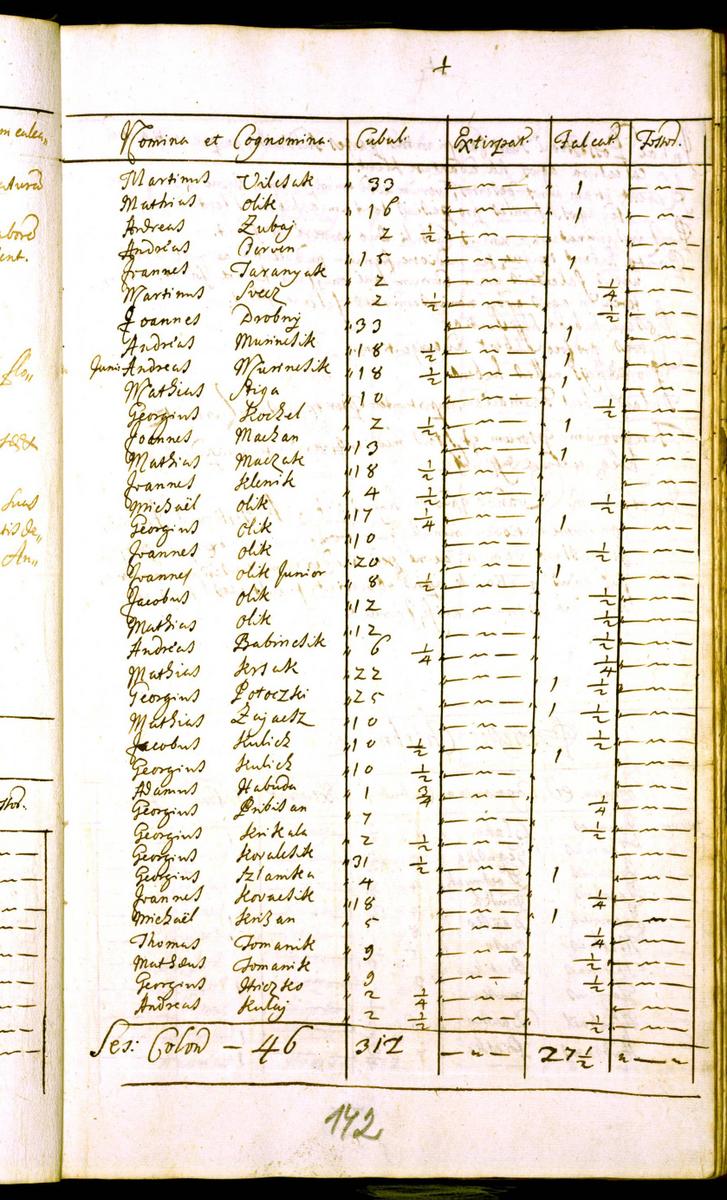 4
Nomina et Cognomina Cubuli Extirpat. Falcat. Fossor.
Martinus Vilcsak " 33 " — " — " 1 " — " —
Mathias Olik " 16 " — " — " 1 " — " —
Andreas Zubaj " 2 ½ " — " — " — " —
Andreas Cserven " 15 " — " — " 1 " — " —
Joannes Taranyak " 2 " — " — " ¼ " — " —
Martinus Svecz " 2 ½ " — " — " ½ " — " —
Joannes Drobnij " 33 " — " — " 1 " — " —
Andreas Murinesik " 18 ½ " — " — " 1 " — " —
Juni: Andreas Murinesik " 18 ½ " — " — " 1 " — " —
Mathias Stiga " 10 " — " — " ½ " — " —
Georgius Kockel " 2 ½ " — " — " 1 " — " —
Joannes Machan " 13 " — " — " 1 " — " —
Mathias Maczak " 18 ½ " — " — " — " —
Joannes Klenik " 4 ½ " — " — " ½ " — " —
Michaël Olik " 17 ¼ " — " — " 1 " — " —
Georgius Olik " 10 " — " — " ½ " — " —
Joannes Olik " 20 " — " — " 1 " — " —
Joannes Olik Junior " 8 ½ " — " — " ½ " — " —
Jacobus Olik " 12 " — " — " ½ " — " —
Mathias Olik " 12 " — " — " ½ " — " —
Andreas Babincsik " 6 ¼ " — " — " ¼ " — " —
Mathias Kersak " 22 " — " — " 1 ½ " — " —
Georgius Potoczki " 25 " — " — " 1 ½ " — " —
Mathias Zajacsz " 10 " — " — " ½ " — " —
Jacobus Kulich " 10 ½ " — " — " 1 " — " —
Georgius Kulich " 10 ½ " — " — " — " —
Adamus Habuda " 1 ¾ " — " — " ¼ " — " —
Georgius Pribilan " 7 " — " — " ½ " — " —
Georgius Skrikala " 2 ½ " — " — " — " —
Georgius Kovalesik " 31 ½ " — " — " 1 " — " —
Georgius Szlamka " 4 " — " — " ¼ " — " —
Joannes Kovacsik " 18 " — " — " 1 " — " —
Michaël Krizan " 5 " — " — " ¼ " — " —
Thomas Tomanik " 9 " — " — " ½ " — " —
Mathæus Tomanik " 9 " — " — " ½ " — " —
Georgius Hiczko " 2 ¼ " — " — " — " —
Andreas Kulaj " 2 ½ " — " — " ½ " — " —
Ses: Colon — 46 312 — " — 27 ½ " — "
142